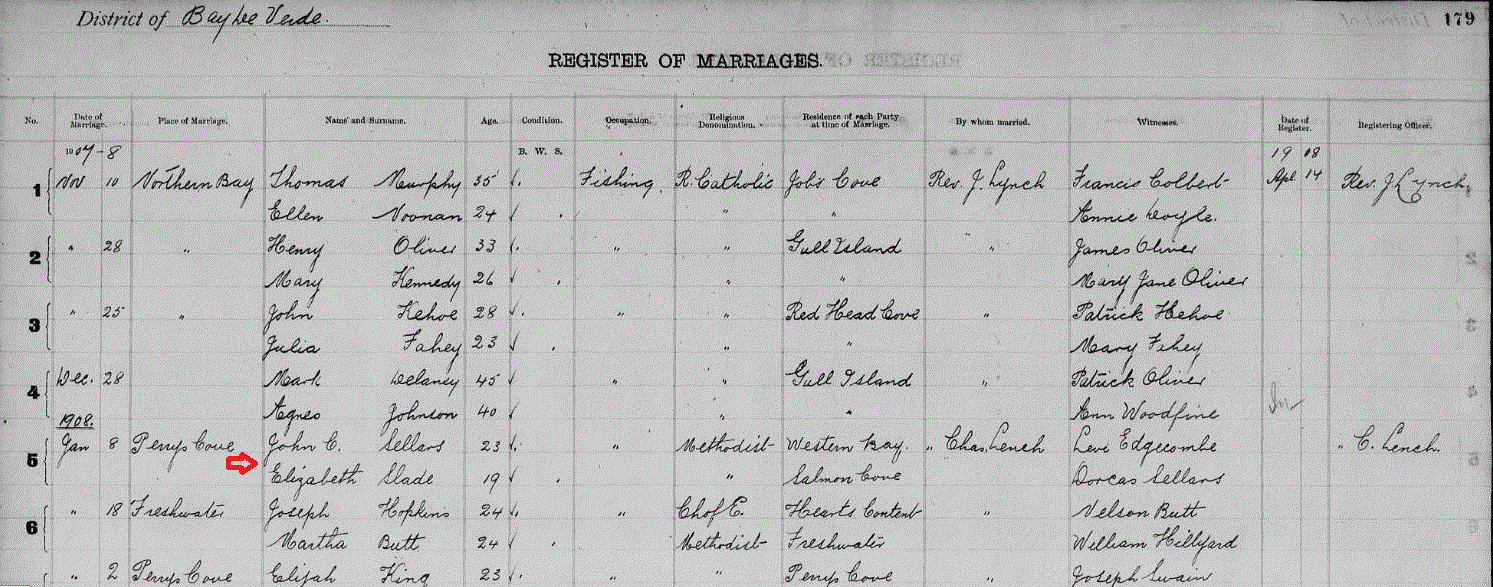 District of Bay de Verde. 179
REGISTER OF MARRIAGES.
No. Date of Marriage. Place of Marriage. Name and Surname. Age. Condition. Occupation. Religious Denomination. Residence of each Party at time of Marriage. By whom married. Witnesses. Date of Register. Registering Officer.
B. W. S.
1907-8 19 08
1 Nov 10 Northern Bay Thomas Murphy 35 Fishing R. Catholic Jobs Cove Rev. J. Lynch Francis Colbert Apl 14 Rev. J Lynch
Ellen Noonan 24 " " Annie Doyle.
2 " 28 " Henry Oliver 33 " " Gull Island " James Oliver
Mary Kennedy 26 " " Mary Jane Oliver
3 " 25 " John Kehoe 28 " " Red Head Cove " Patrick Kehoe
Julia Fahey 23 " " Mary Fahey
4 Dec. 28 Mark Delaney 45 " " Gull Island " Patrick Oliver
Agnes Johnson 40 " " Ann Woodfine
1908.
5 Jan 8 Perrys Cove John C. Sellars 23 " Methodist Western Bay. " Chas. Lench Levi Edgecombe " C. Lench.
Elizabeth Slade 19 " Salmon Cove Dorcas Sellars
6 " 18 Freshwater Joseph Hopkins 24 " Ch of E. Hearts Content " Nelson Butt
Martha Butt 24 Methodist Freshwater William Hillyard
" 2 Perrys Cove Elijah King 23 " " Perrys Cove " Joseph Swain